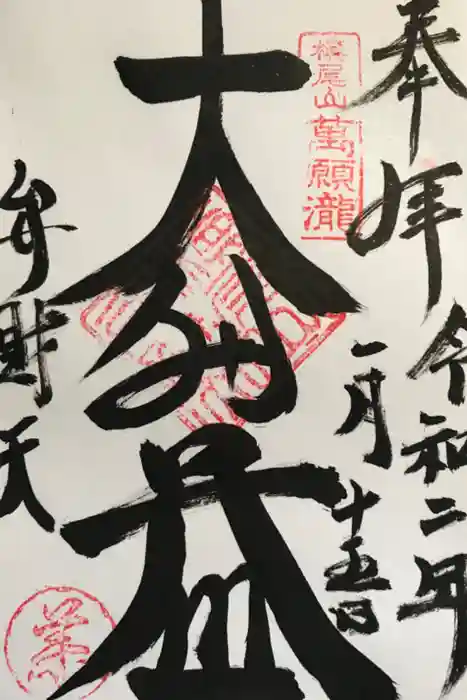 奉拝
令和二年
一月十五日
槇尾山萬願瀧
大利益
弁財天